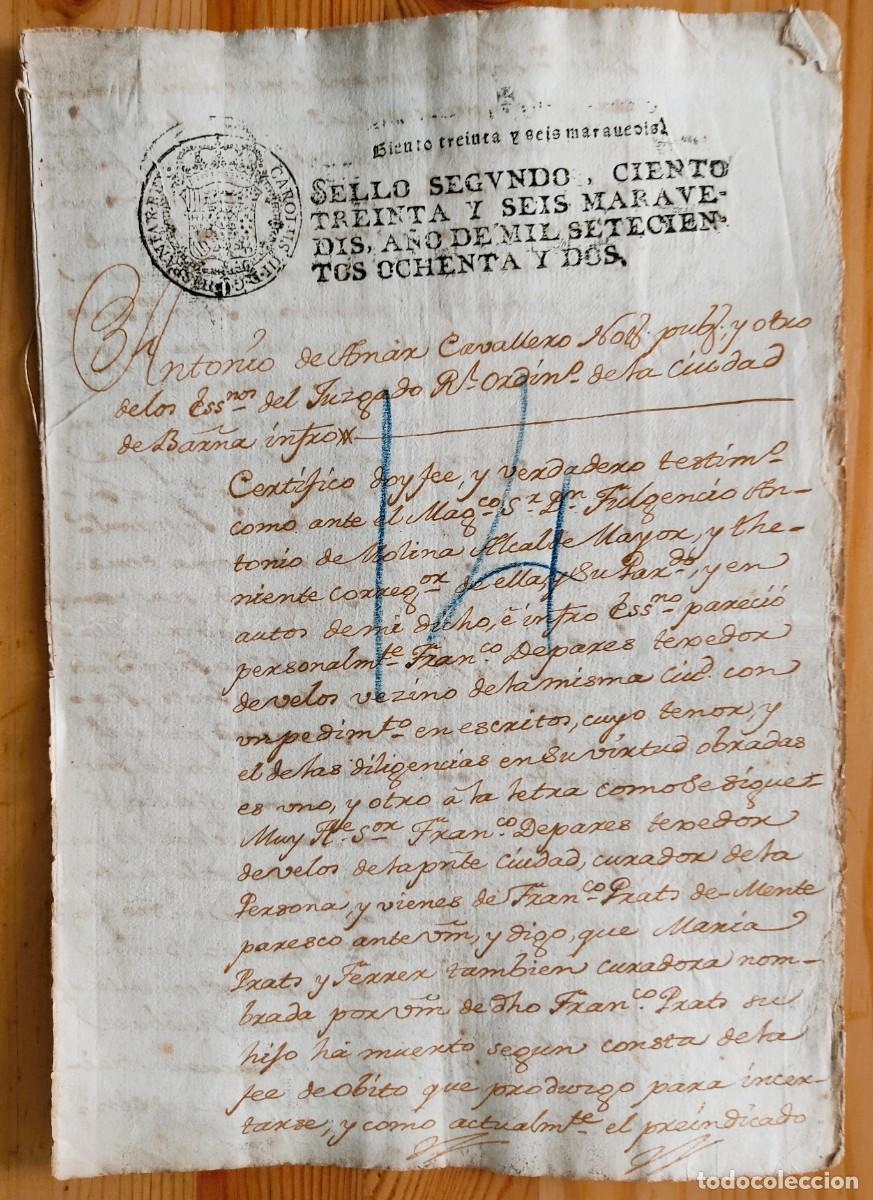 Ciento treinta y seis maravedis.
CAROLUS III D G HISPANIAR REX
SELLO SEGVNDO, CIENTO
TREINTA Y SEIS MARAVE-
DIS, AÑO DE MIL SETECIEN-
TOS OCHENTA Y DOS.
Antonio de Amar Cavallero Nott. pubt. y otro
delos Essnos. del Juzgado Rl. Ordino. dela Ciudad
de Barña infro
Certifico doy fee, y verdadero testimo.
como ante el Magco. Sr. Dn. Fulgencio An-
tonio de Molina Alcalde Mayor, y The-
niente corregor. de ella y Su Pardo. y en
autos de mi dicho, è infro Essno. pareció
personalmte. Franco. Depares texedor
de velos vezino dela misma ciud. con
un pedimto. en escritos, cuyo tenor, y
el de las diligencias en su virtud obradas
es uno, y otro à la letra como se sigue
Muy Ile. Sor. Franco. Depares texedor
de velos dela pñte Ciudad, curador dela
Persona, y vienes de Franco. Prats de-Mente
paresco ante Vm, y digo, que Maria
Prats y Ferrer tambien curadora nom-
brada por Vm de dho Franco. Prats su
hijo ha muerto segun consta dela
fee de obito que produzgo para incer-
tarse, y como actualmte. el preindicado
14
todocoleccion